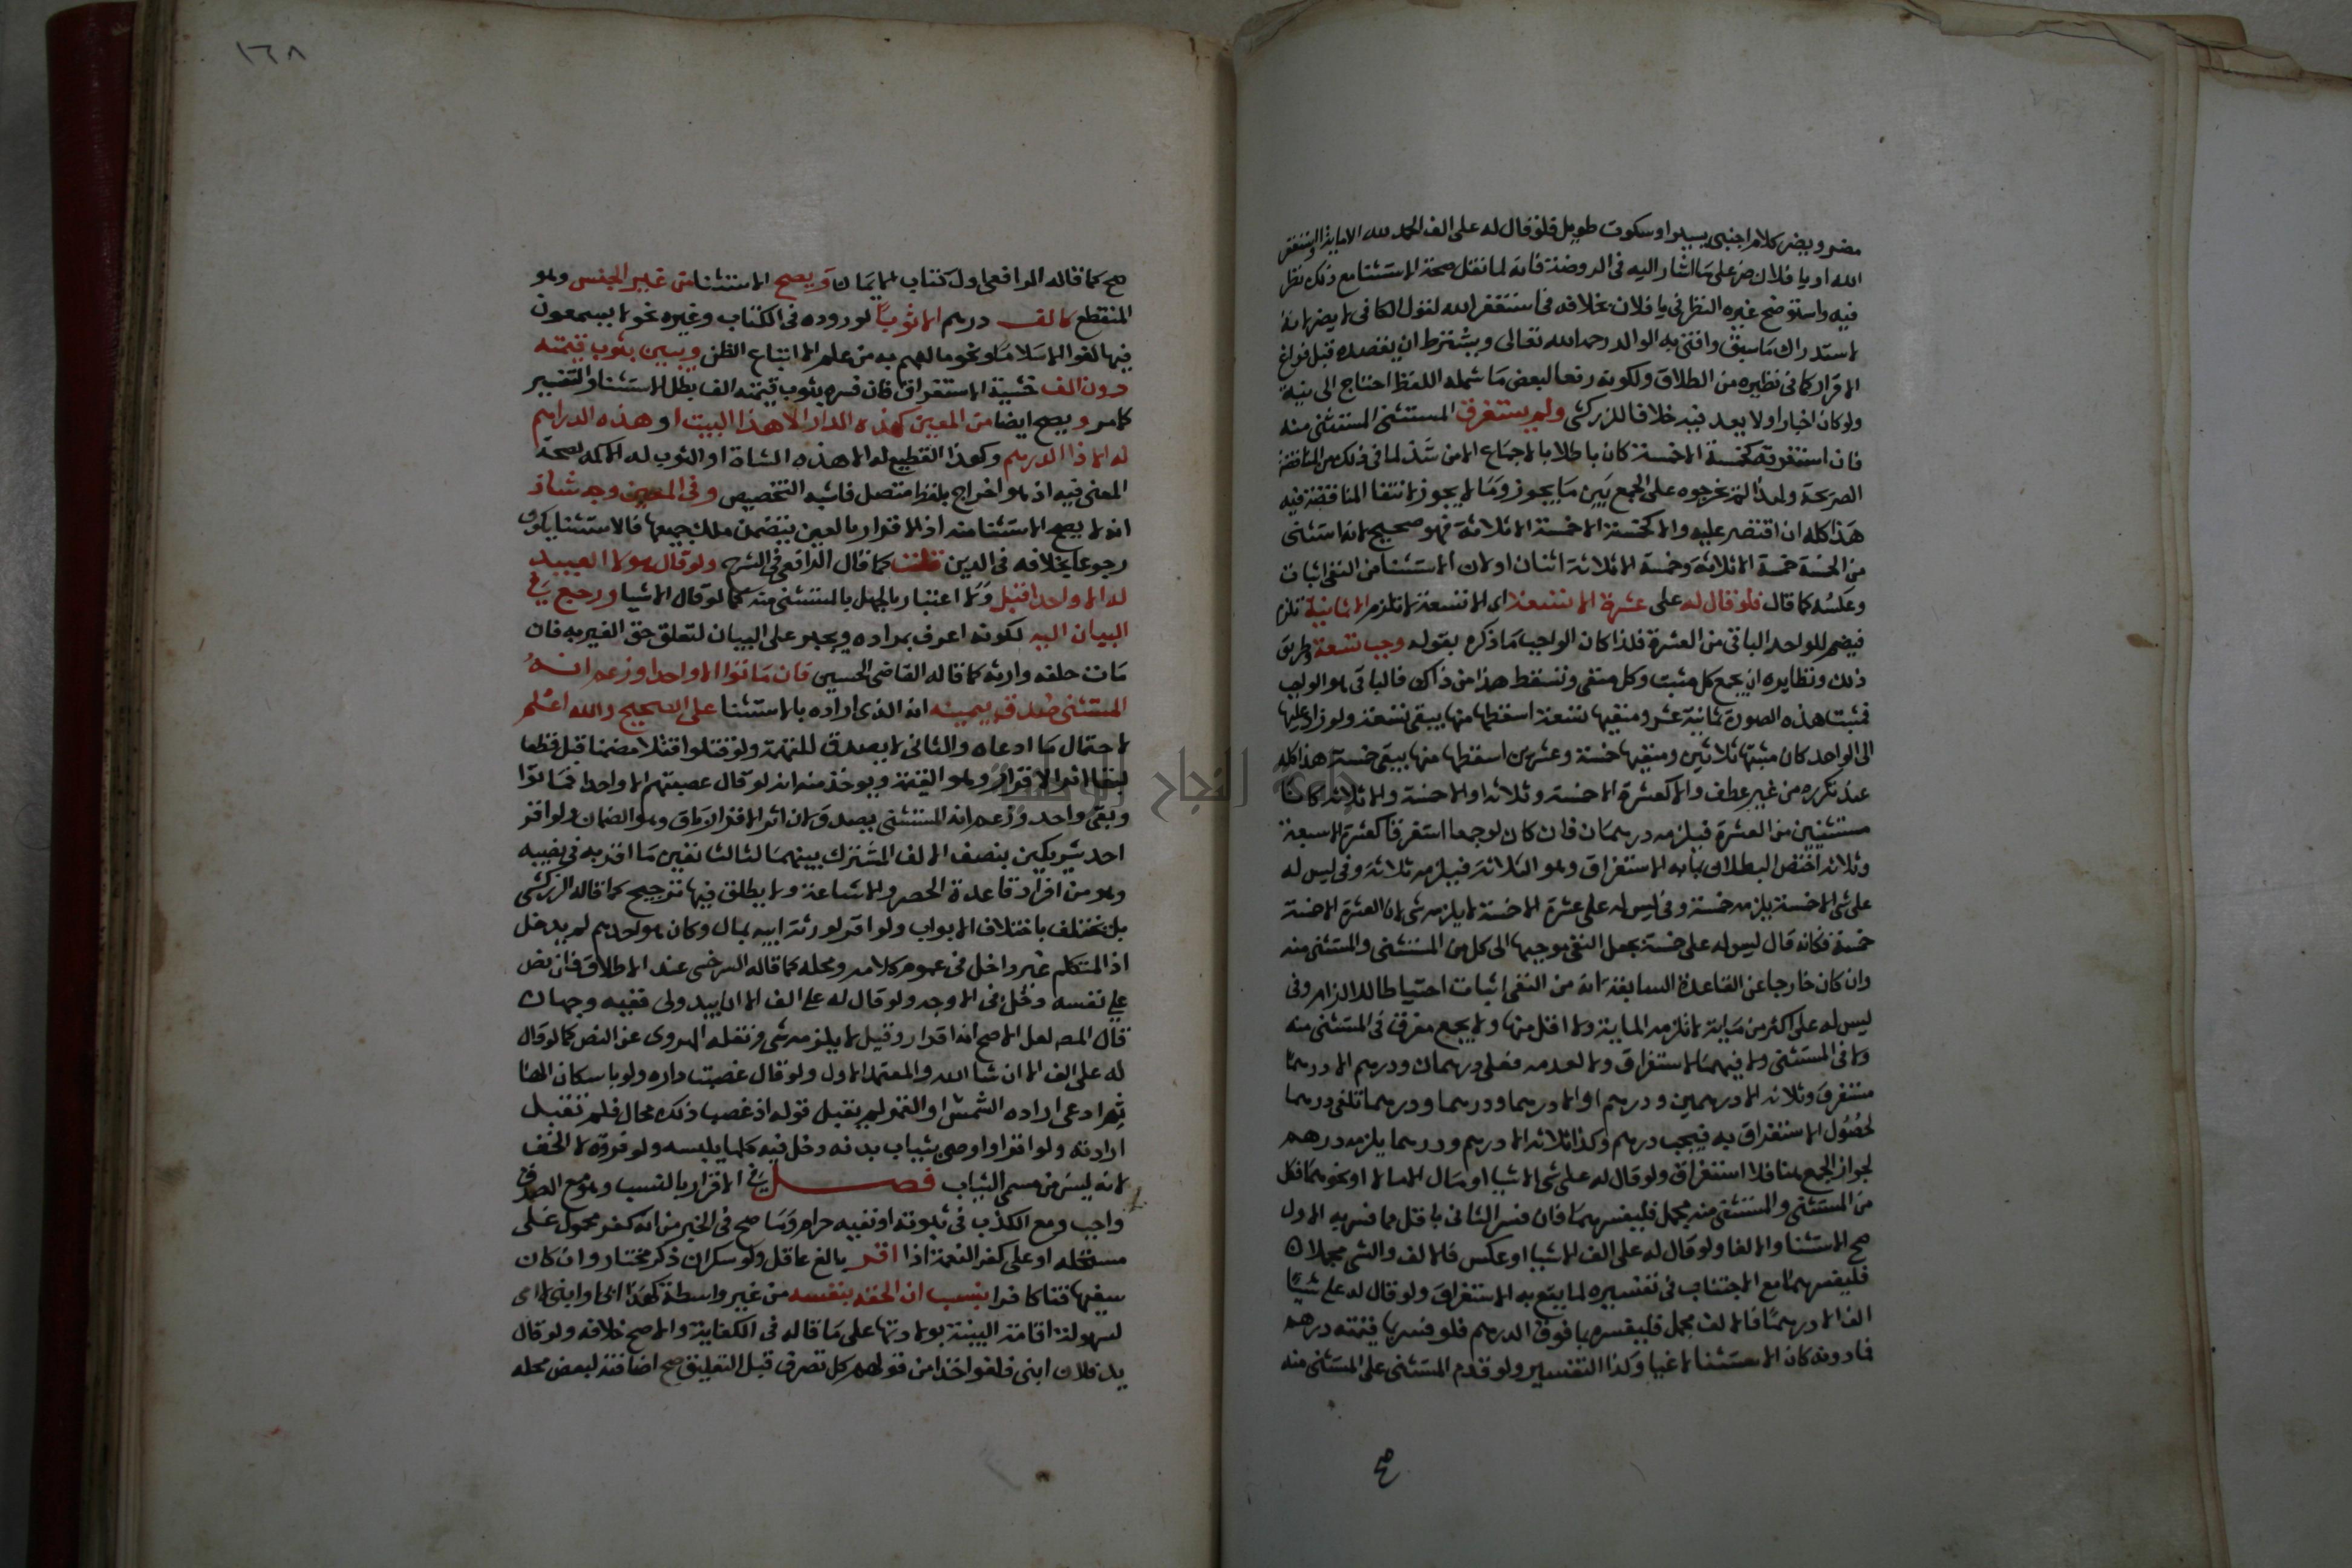 مضر ويضر كلام اجنبي يسير او سكوت طويل فلو قال له على الف الحمد لله الا ماية او استغفر
الله او يا فلان ضر على ما اشار اليه في الروضة فانه لما نقل صحة الاستثنا مع ذلك نظر
فيه واستوضح غيره النظر في يا فلان بخلافه في استغفر الله لقول الكافي لا يضر لانه
لاستدراك ما سبق وافتى به الوالد رحمه الله تعالى ويشترط ان يقصده قبل فراغ
الاقرار كما في نظيره من الطلاق ولكونه رفعا لبعض ما شمله اللفظ احتاج الى نية
ولو كان اخبارا ولا بعد فيه خلافا للزركشي ولم يستغرق المستثنى المستثنى منه
فان استغرقه كخمسة الا خمسة كان باطلا بالاجماع الا من شذ لما في ذلك من المناقضة
الصريحة ولهذا لم يخرجوه على الجمع بين ما يجوز وما لا يجوز لانتفا المناقضة فيه
هذا كله ان اقتصر عليه والا كخمسة الا خمسة الا ثلاثة فهو صحيح لانه استثنى
من الخمسة خمسة الا ثلاثة وخمسة الا ثلاثة اثنان او لان الاستثنا من النفي اثبات
وعكسه كما قال فلو قال له على عشرة الا تسعة اي الا تسعة لا تلزم الا ثمانية تلزم
فيضم للواحد الباقي من العشرة فلذا كان الواجب ما ذكره بقوله وجب تسعة وطريق
ذلك ونظايره ان يجمع كل مثبت وكل منفي وتسقط هذا من ذاك فالباقي هو الواجب
فمثبت هذه الصورة ثمانية عشر ومنفيها تسعة اسقطها منها يبقى تسعة ولو زاد عليها
الى الواحد كان مثبتها ثلاثين ومنفيها خمسة وعشرين اسقطها منها يبقى خمسة هذا كله
عند تكرره من غير عطف والا كعشرة الا خمسة وثلاثة او الا خمسة والا ثلاثة كانا
مستثنيين من العشرة فيلزمه درهمان فان كان لو جمعا استغرقا كعشرة الا سبعة
وثلاثة اختص البطلان بما به الاستغراق وهو الثلاثة فيلزمه ثلاثة وفي ليس له
على شي الا خمسة يلزمه خمسة وفي ليس له على عشرة الا خمسة لا يلزمه شي لان العشرة الا خمسة
خمسة فكانه قال ليس له على خمسة بجعل النفي موجها الى كل من المستثنى والمستثنى منه
وان كان خارجا عن القاعدة السابقة انه من النفي اثبات احتياطا للالزام وفي
ليس له على اكثر من ماية لا تلزمه الماية ولا اقل منها ولا يجمع مفرق في المستثنى منه
ولا في المستثنى ولا فيهما لاستغراق ولا لعدمه فعلي درهمان ودرهم الا درهما
مستغرق وثلاثة الا درهمين ودرهم او الا درهما ودرهما ودرهما تلغي درهما
لحصول الاستغراق به فيجب درهم وكذا ثلاثة الا درهم ودرهما يلزمه درهم
لجواز الجمع هنا فلا استغراق ولو قال له على شي الا شيا او مال الا مالا او نحوهما فكل
من المستثنى والمستثنى منه مجمل فليفسرهما فان فسر الثاني باقل مما فسر به الاول
صح الاستثنا والا لغا ولو قال له على الف الا شيا او عكس فالالف والشي مجملان
فليفسرهما مع الاجتناب في تفسيره لما يقع به الاستغراق ولو قال له على شيا
الف الا درهما فالالف مجمل فليفسره بما فوق الدرهم فلو فسره بما قيمته درهم
فما دونه كان الاستثنا لاغيا وكذا التفسير ولو قدم المستثنى على المستثنى منه
صح
١٦٨
صح كما قاله الرافعي اول كتاب الايمان ويصح الاستثنا من غير الجنس وهو
المنقطع كالف درهم الا ثوبا لوروده في الكتاب وغيره نحو لا يسمعون
فيها لغوا الا سلاما ونحو ما لهم به من علم الا اتباع الظن ويبين بثوب قيمته
دون الف خشية الاستغراق فان فسره بثوب قيمته الف بطل الاستثنا والتفسير
كما مر ويصح ايضا من المعين كهذه الدار الا هذا البيت او هذه الدراهم
له الا ذا الدرهم وكهذا القطيع له الا هذه الشاة او الثوب له الا كمه لصحة
المعنى فيه اذ هو اخراج بلفظ متصل فاشبه التخصيص وفي المعين وجه شاذ
انه لا يصح الاستثنا منه اذ الاقرار بالعين يتضمن ملك جميعها فالاستثنا يكون
رجوعا بخلافه في الدين قلت كما قال الرافعي في الشرح ولو قال هولا العبيد
له الا واحدا قبل ولا اعتبار بالجهل بالمستثنى منه كما لو قال الا شيا ورجع في
البيان اليه لكونه اعرف بمراده ويجبر على البيان لتعلق حق الغير به فان
مات خلفه وارثه كما قاله القاضي الحسين فان ماتوا الا واحدا وزعم انه
المستثنى صدق بيمينه انه الذي اراده بالاستثنا على الصحيح والله اعلم
لاحتمال ما ادعاه والثاني لا يصدق للتهمة ولو قتلوا قتلا مضمنا قبل قطعا
لبقا اثر الاقرار وهو القيمة ويوخذ منه انه لو قال غصبتهم الا واحدا فماتوا
وبقي واحد وزعم انه المستثنى يصدق لان اثر الاقرار باق وهو الضمان ولو اقر
احد شريكين بنصف الالف المشترك بينهما لثالث تعين ما اقر به في نصيبه
وهو من افراد قاعدة الحصر والاشاعة ولا يطلق فيها ترجيح كما قاله الزركشي
بل تختلف باختلاف الابواب ولو اقر لورثة ابيه بمال وكان هو احدهم لم يدخل
اذ المتكلم غير داخل في عموم كلامه ومحله كما قاله السرخسي عند الاطلاق فان نص
على نفسه دخل في الاوجه ولو قال له على الف الا ان يبدو لي ففيه وجهان
قال المصـ لعل الاصح انه اقرار وقيل لا يلزمه شي ونقله الهروي عن النص كما لو قال
له على الف الا ان شا الله والمعتمد الاول ولو قال غصبت داره ولو باسكان الها
ثم ادعى اراده الشمس او القمر لم يقبل قوله اذ غصب ذلك محال فلم تقبل
ارادته ولو اقر او اوصى بثياب بدنه دخل فيه كلما يلبسه ولو فروة لا الخف
لانه ليس من مسمى الثياب فصـــل في الاقرار بالنسب وهو مع الصدق
واجب ومع الكذب في ثبوته او نفيه حرام وما صح في الخبر من انه كفر محمول على
مستحله او على كفر النعمة اذا اقر بالغ عاقل ولو سكران ذكر مختار وان كان
سفيها قنا كافرا بنسب ان الحقه بنفسه من غير واسطة كهذا ابي او ابني لا امي
لسهولة اقامة البينة بولادتها على ما قاله في الكفاية والاصح خلافه ولو قال
يد فلان ابني فلغو اخذا من قولهم كل تصرف قبل التعليق صح اضافته لبعض محله
جامعة النجاح الوطنية